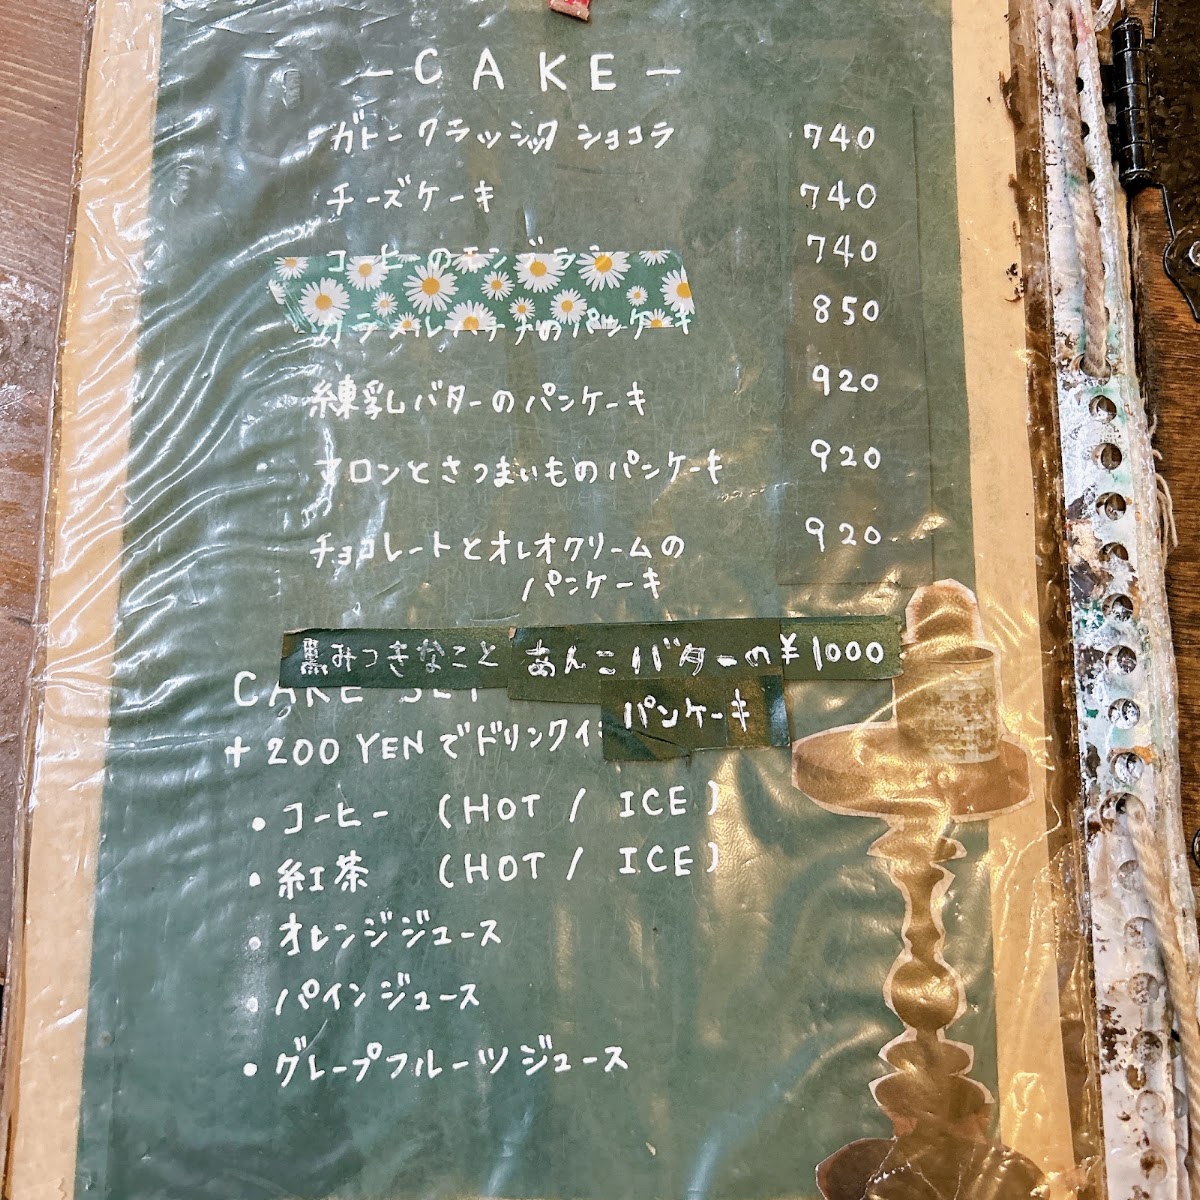 - CAKE -
ガトークラッシック ショコラ 740
チーズケーキ 740
コーヒーのモンブラン 740
カラメルバナナのパンケーキ 850
練乳バターのパンケーキ 920
マロンとさつまいものパンケーキ 920
チョコレートとオレオクリームの 920
パンケーキ
黒みつきなこと あんこバターの ¥1000
パンケーキ
CAKE SET
+ 200 YEN でドリンク
・コーヒー (HOT / ICE)
・紅茶 (HOT / ICE)
・オレンジジュース
・パインジュース
・グレープフルーツジュース